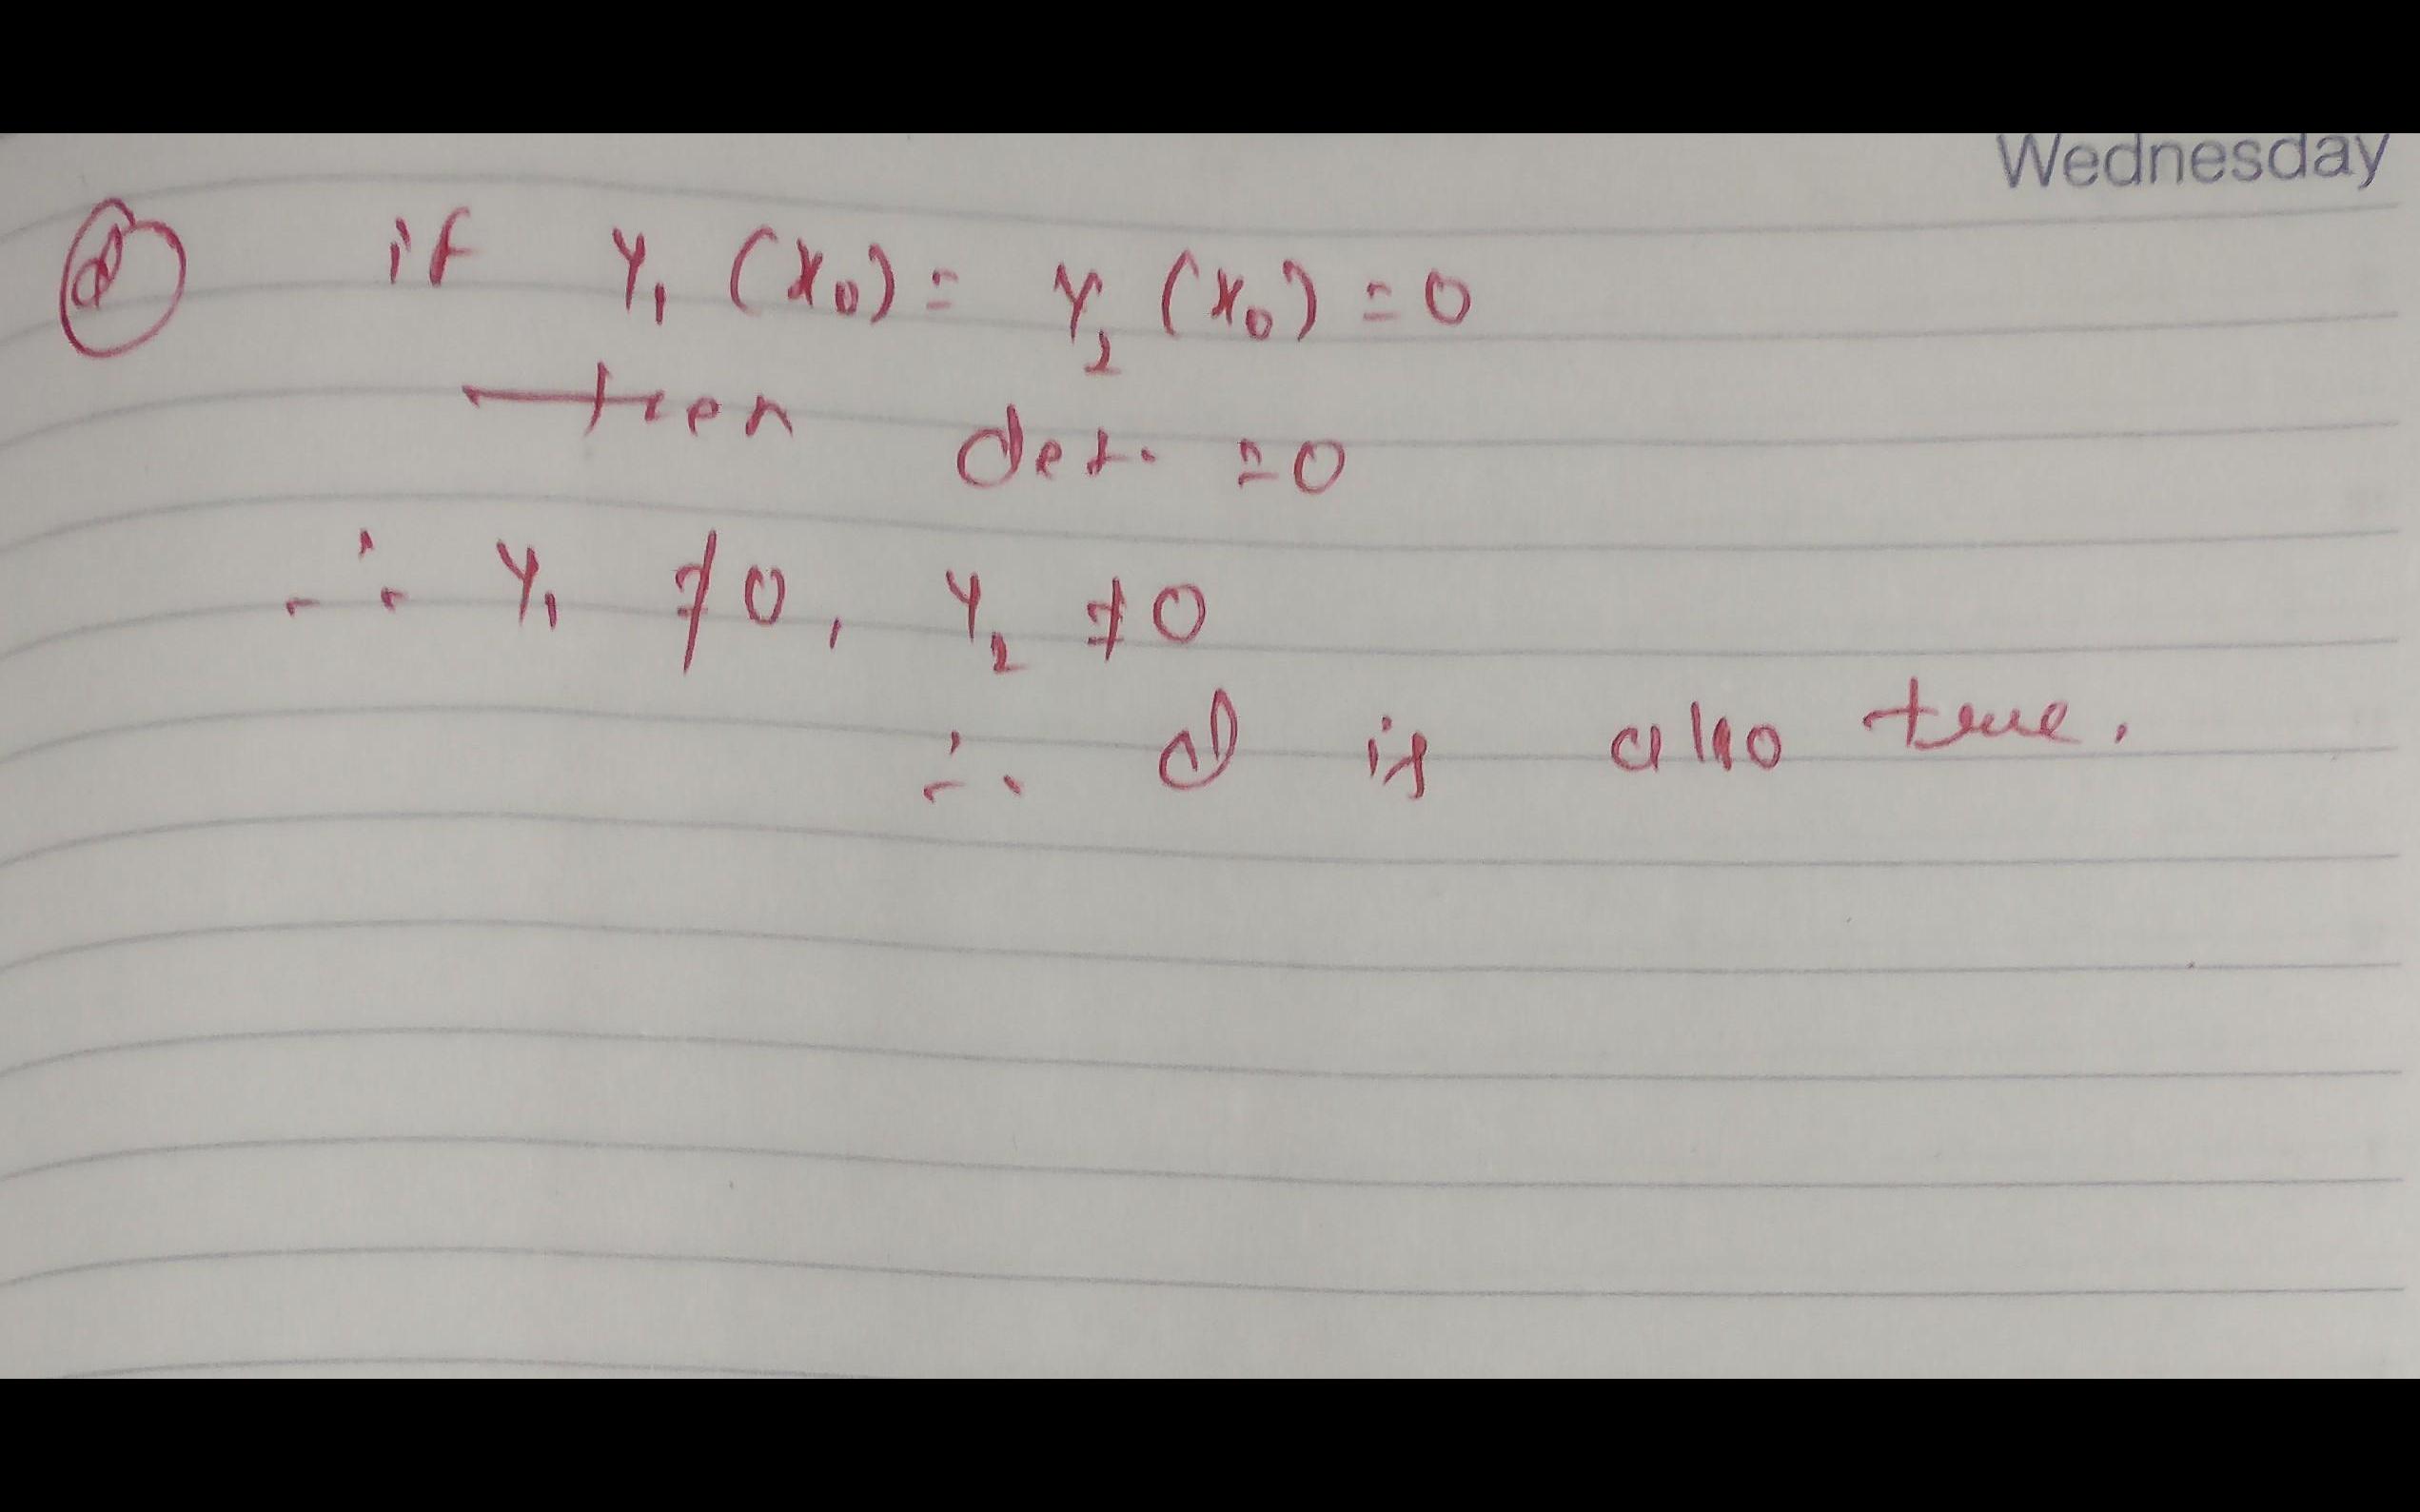 Wednesday
ⓓ if y₁ (x₀) = y₂ (x₀) = 0
then det. = 0
∴ y₁ ≠ 0, y₂ ≠ 0
∴ d is also true.